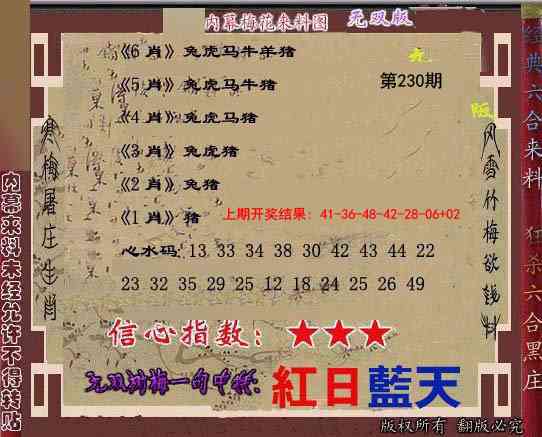 内幕梅花来料图 无双版
《6 肖》兔虎马牛羊猪
《5 肖》兔虎马牛猪
第230期
《4 肖》兔虎马猪
《3 肖》兔虎猪
《2 肖》兔猪
《1 肖》猪
上期开奖结果：41-36-48-42-28-06+02
心水码: 13 33 34 38 30 42 43 44 22
23 32 35 29 25 12 18 24 25 26 49
信心指数：★★★
无双刘梅一句中特:
紅日藍天
版权所有 翻版必究
寒梅屠庄生肖
风雪竹梅欲钱料
内幕来料未经允许不得转贴
经典六合来料 狂杀六合黑庄